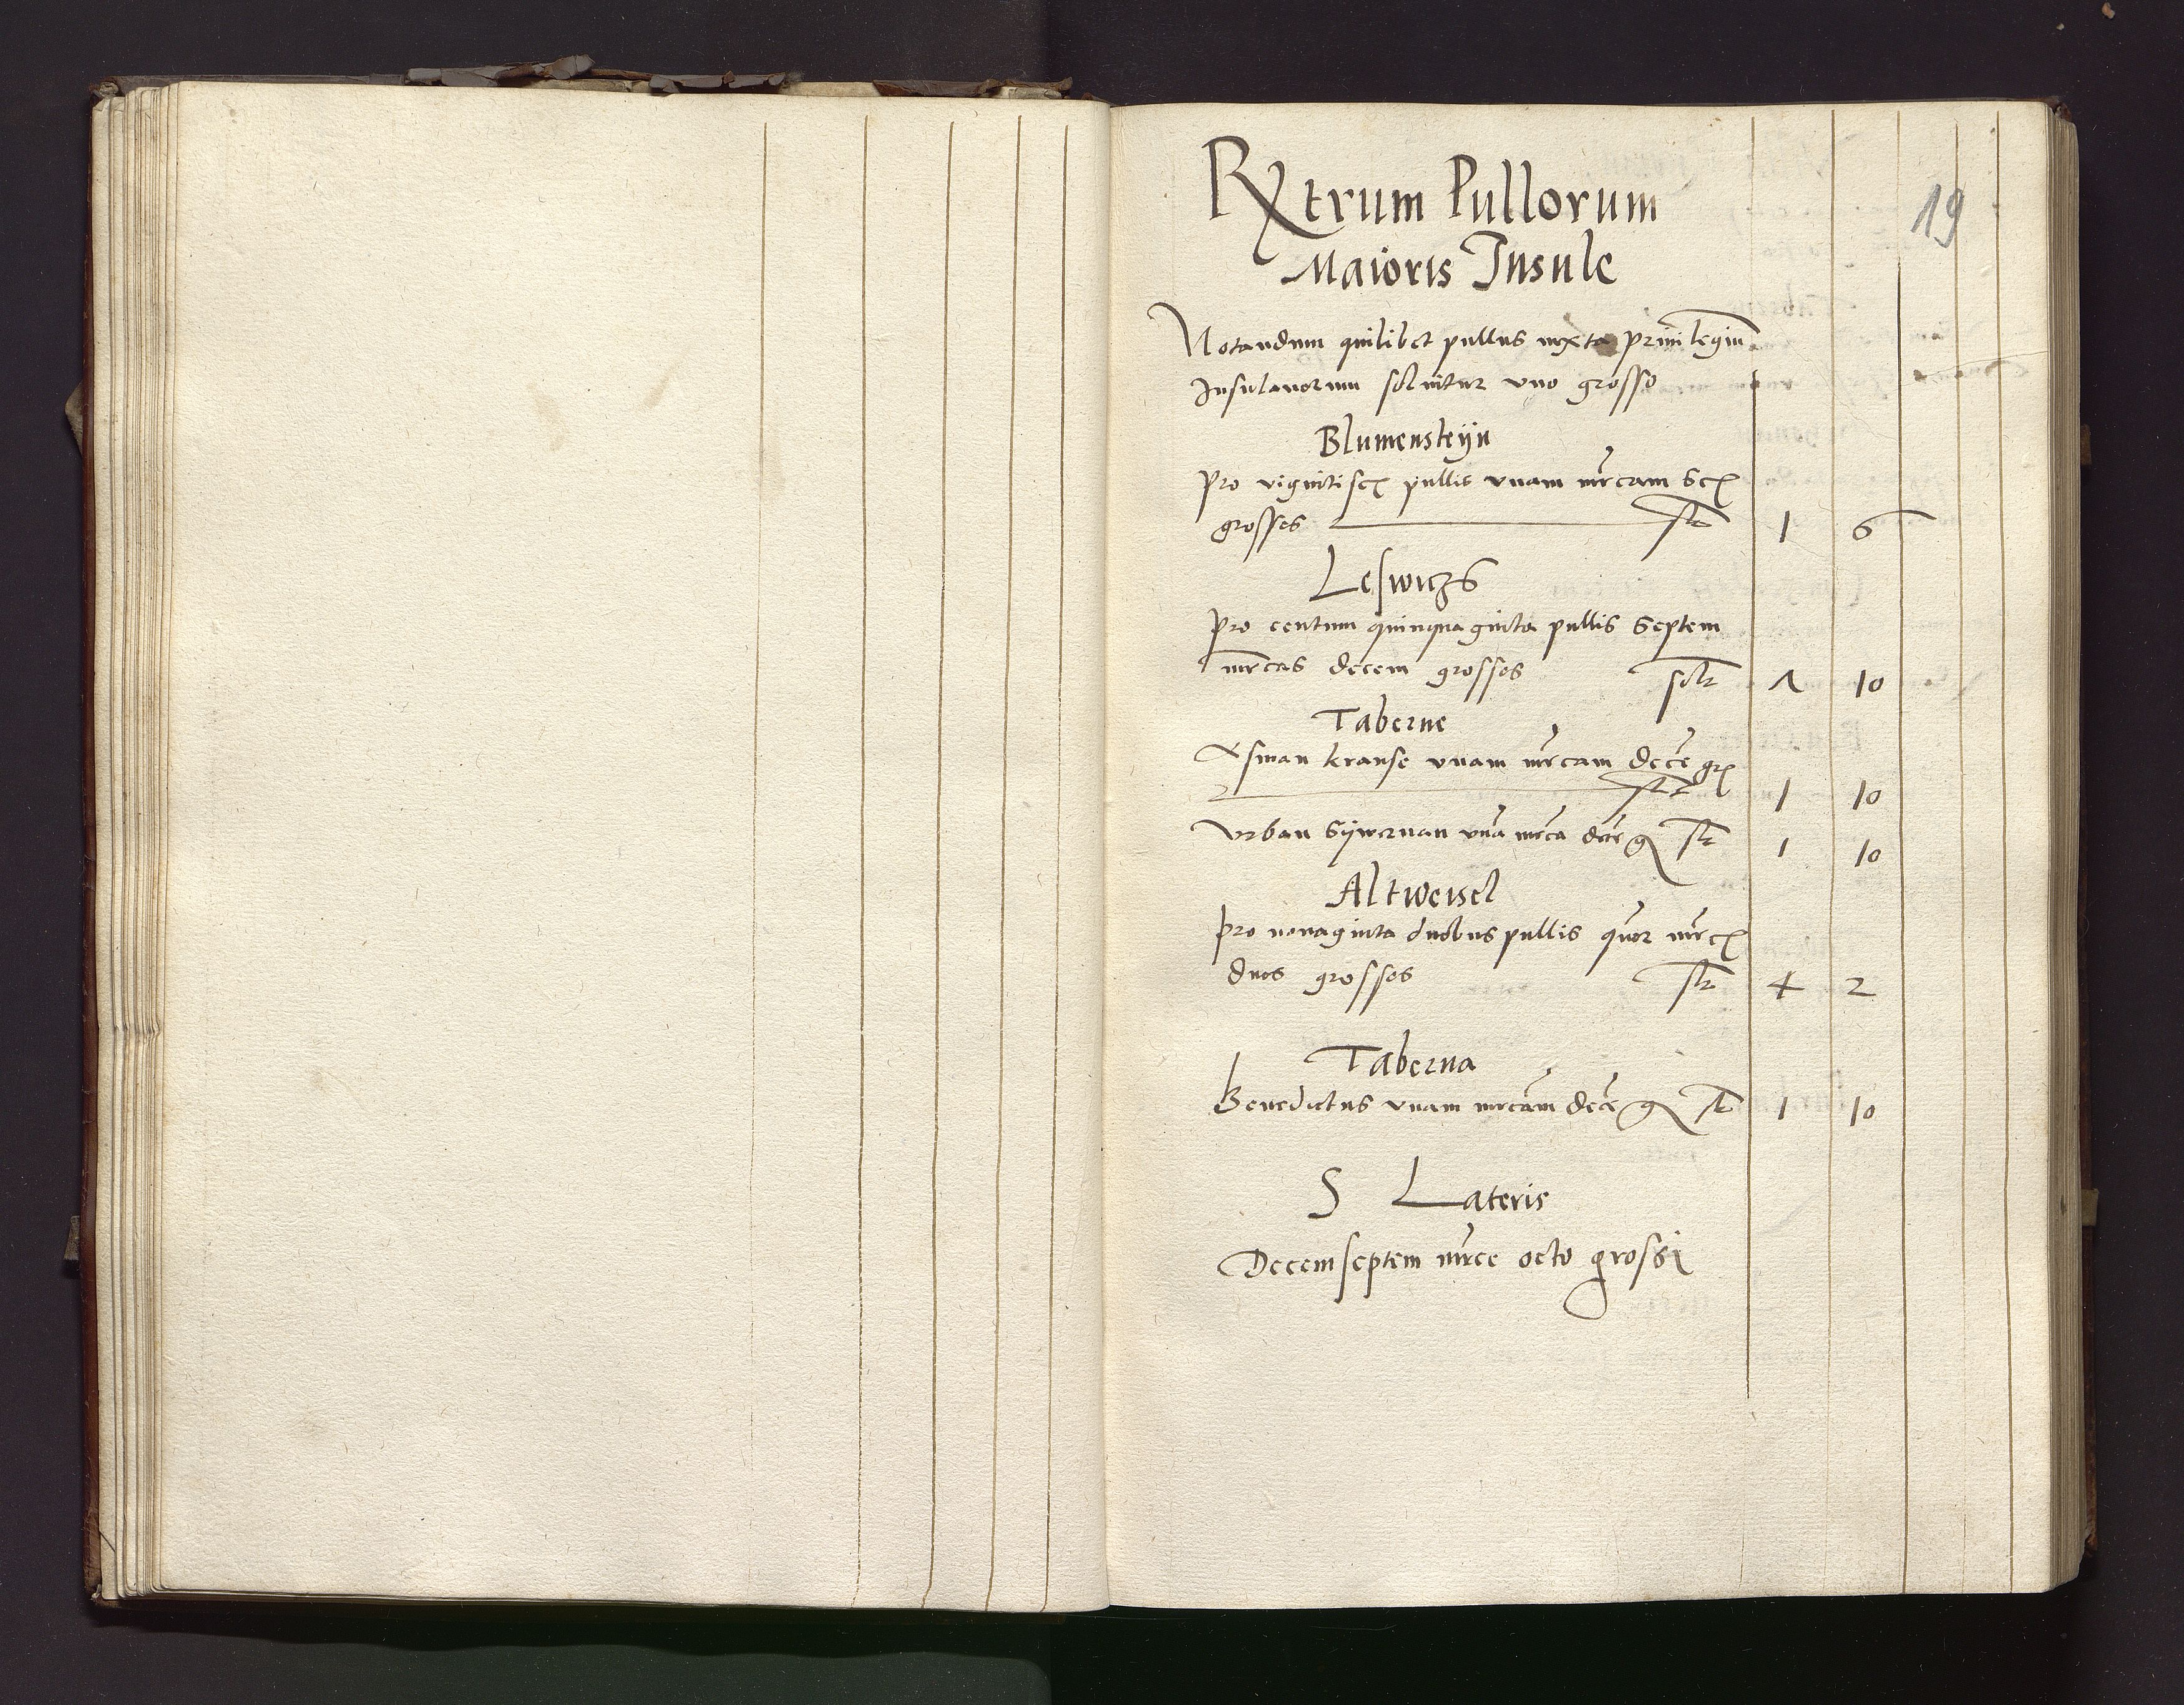 Rxtrum Pullorum
Maioris Insule
19
Notandum quilibet pullus iuxta priuilegiū
Insulanorum soluitur vno grosso
Blumensteyn
Pro viginti sex pullis vnam mrcam sex
grosses solr 1 6
Leswiczs
Pro centum quinquaginta pullis septem
mrcas decem grosses solr 7 10
Taberne
Asman kranse vnam mrcam decē gr
solr 1 10
Vrban Sywernan vnā mrcā decē gr solr 1 10
Altweisel
Pro nonaginta duobus pullis quor mrc
duos grosses solr 4 2
Taberna
Benedictus vnam mrcam decē gr solr 1 10
S Lateris
Decemseptem mrce octo grossi